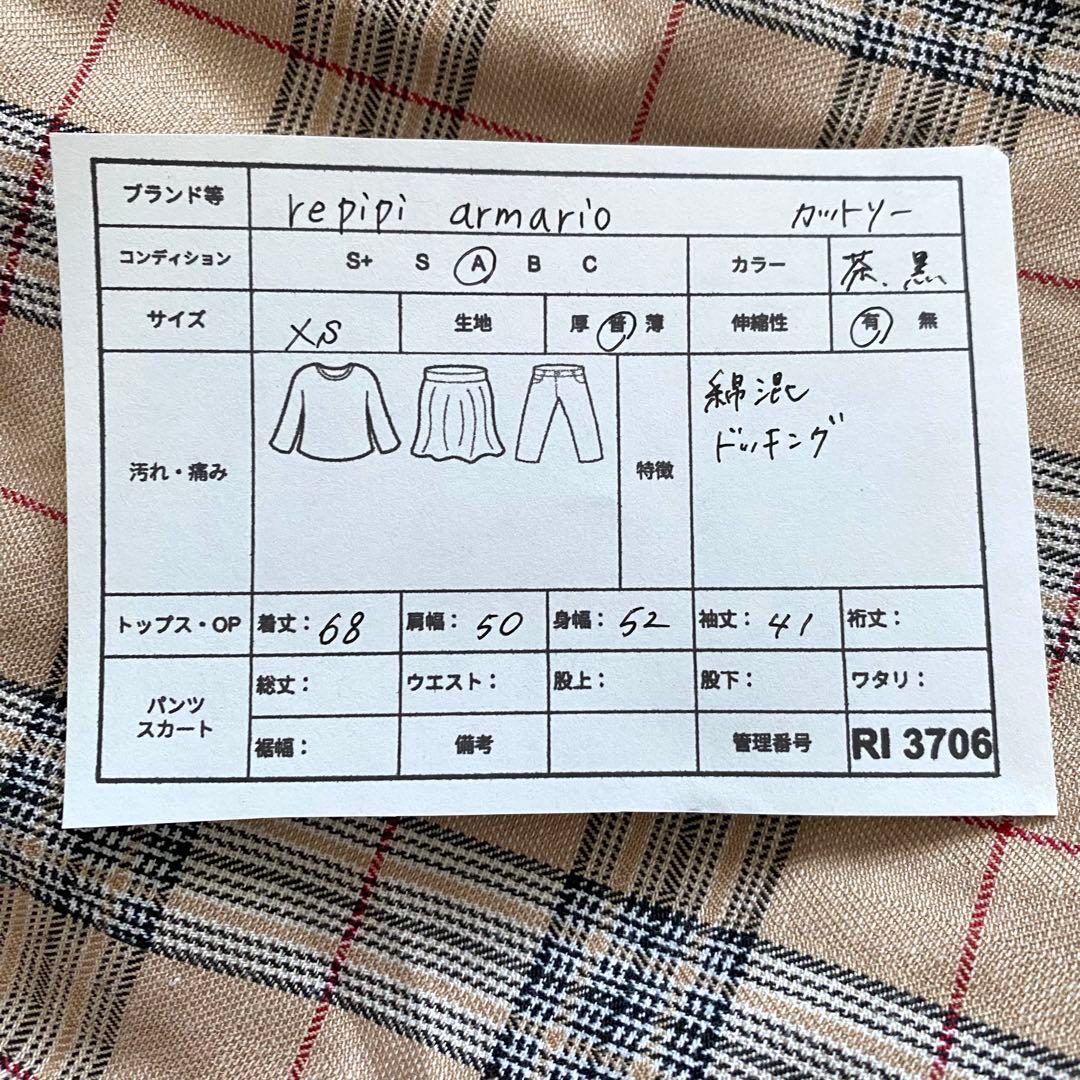 ブランド等 repipi armario カットソー
コンディション S+ S A B C カラー 茶、黒
サイズ XS 生地 厚 普 薄 伸縮性 有 無
汚れ・痛み 特徴 綿混
ドッキング
トップス・OP 着丈：68 肩幅：50 身幅：52 袖丈：41 裄丈：
パンツ
スカート
総丈： ウエスト： 股上： 股下： ワタリ：
裾幅： 備考 管理番号 RI 3706